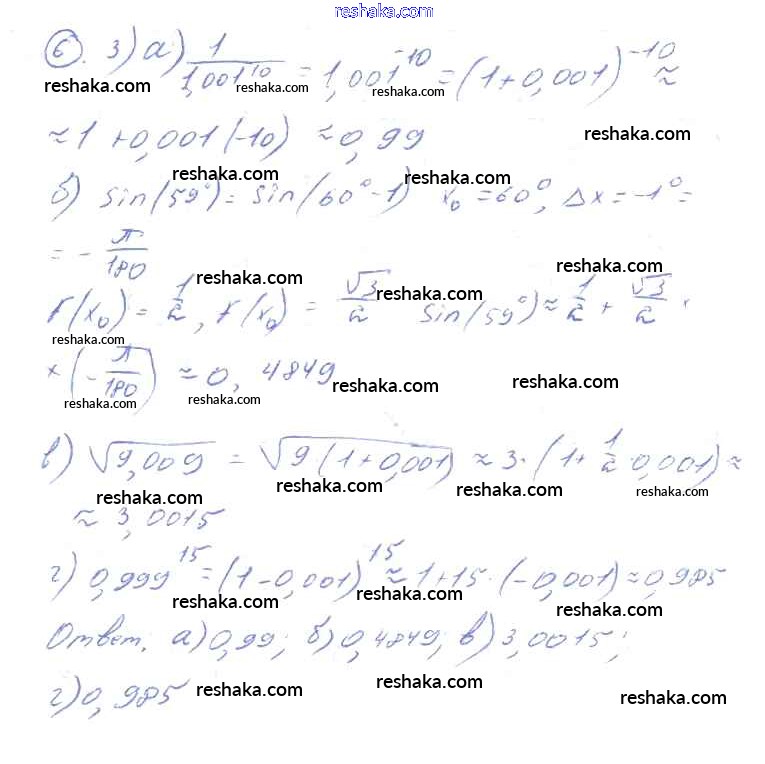 reshaka.com
⑥. 3) а) 1/1,001^10 = 1,001^-10 = (1+0,001)^-10 ≈
reshaka.com reshaka.com reshaka.com
≈ 1 + 0,001(-10) ≈ 0,99 reshaka.com
reshaka.com reshaka.com
б) sin(59°) = sin(60°-1) x₀ = 60°, Δx = -1° =
= - π/180
reshaka.com reshaka.com
f(x₀) = 1/2, f(x₀) = √3/2 reshaka.com sin(59°) ≈ 1/2 + √3/2 ·
reshaka.com reshaka.com
× (- π/180) ≈ 0,4849 reshaka.com reshaka.com
reshaka.com reshaka.com
в) √9,009 = √9(1+0,001) ≈ 3·(1+ 1/2 ·0,001) ≈
reshaka.com reshaka.com reshaka.com reshaka.com
≈ 3,0015
г) 0,999^15 = (1-0,001)^15 ≈ 1+15·(-0,001) ≈ 0,985
reshaka.com reshaka.com reshaka.com
Ответ. а) 0,99; б) 0,4849; в) 3,0015;
reshaka.com reshaka.com reshaka.com
г) 0,985 reshaka.com reshaka.com reshaka.com